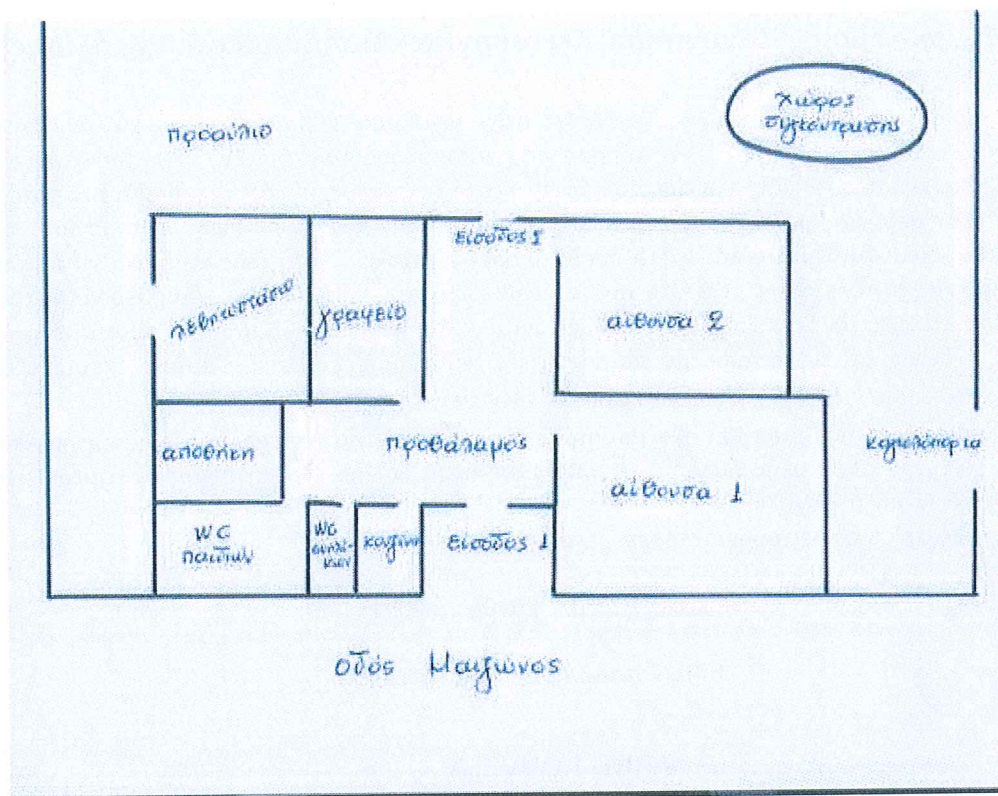 χώρος
συγκέντρωσης
προαύλιο
είσοδος 2
λεβητοστάσιο
γραφείο
αίθουσα 2
αποθήκη
προθάλαμος
καγκελόπορτα
αίθουσα 1
WC
παιδιών
WC
κουζίνα
είσοδος 1
οδός Μαιζώνος